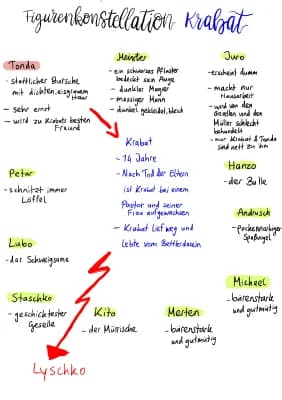 Figurenkonstellation Krabat
Tonda
- stattlicher Bursche
mit dichtem, eisgrauem
Haar
- sehr ernst
- wird zu Krabats besten
Freund
Meister
- ein schwarzes Pflaster
bedeckt sein Auge
- dunkler Magier
- massiger Mann
- dunkel gekleidet, bleich
Juro
- erscheint dumm
- macht nur
Hausarbeit
- wird von den
Gesellen und dem
Müller schlecht
behandelt
- nur Krabat & Tonda
sind nett zu ihm
Krabat
- 14 Jahre
- Nach Tod der Eltern
ist Krabat bei einem
Pastor und seiner
Frau aufgewachsen
- Krabat lief weg und
lebte vom Bettlerdasein
Petar
- schnitzt immer
Löffel
Hanzo
- der Bulle
Andrusch
- pockennarbiger
Spaßvogel
Lubo
- das Schweigsame
Staschko
- geschicktester
Geselle
Kito
- der Mürrische
Merten
- bärenstark
und gutmütig
Michael
- bärenstark
und gutmütig
Lyschko